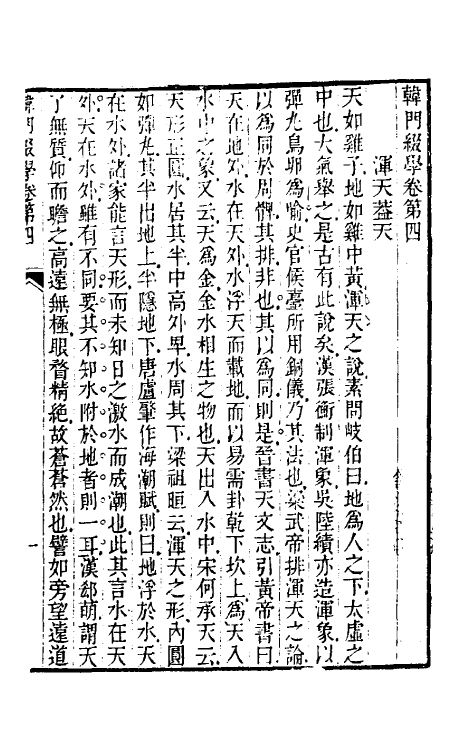 韓門綴學卷第四
渾天蓋天
天如雞子地如雞中黃渾天之說素問岐伯曰地爲人之下太虛之
中也大氣舉之是古有此說矣漢張衡制渾象吳陸續亦造渾象以
彈丸鳥卵爲喻史官候臺所用銅儀乃其法也梁武帝排渾天之論
以爲同於周髀其排非也其以爲同則是晉書天文志引黃帝書曰
天在地外水在天外水浮天而載地而以易需卦乾下坎上爲天入
水中之象又云天爲金金水相生之物也天出入水中宋何承天云
天形正圓水居其半中高外卑水周其下梁祖暅云渾天之形內圓
如彈丸其半出地上半隱地下唐盧肇作海潮賦則曰地浮於水天
在水外諸家能言天形而未知日之激水而成潮也此其言水在天
外天在水外雖有不同要其不知水附於地者則一耳漢郄萌謂天
了無質仰而瞻之高遠無極眼瞀精絶故蒼蒼然也譬如旁望遠道
韓門綴學卷第四
一